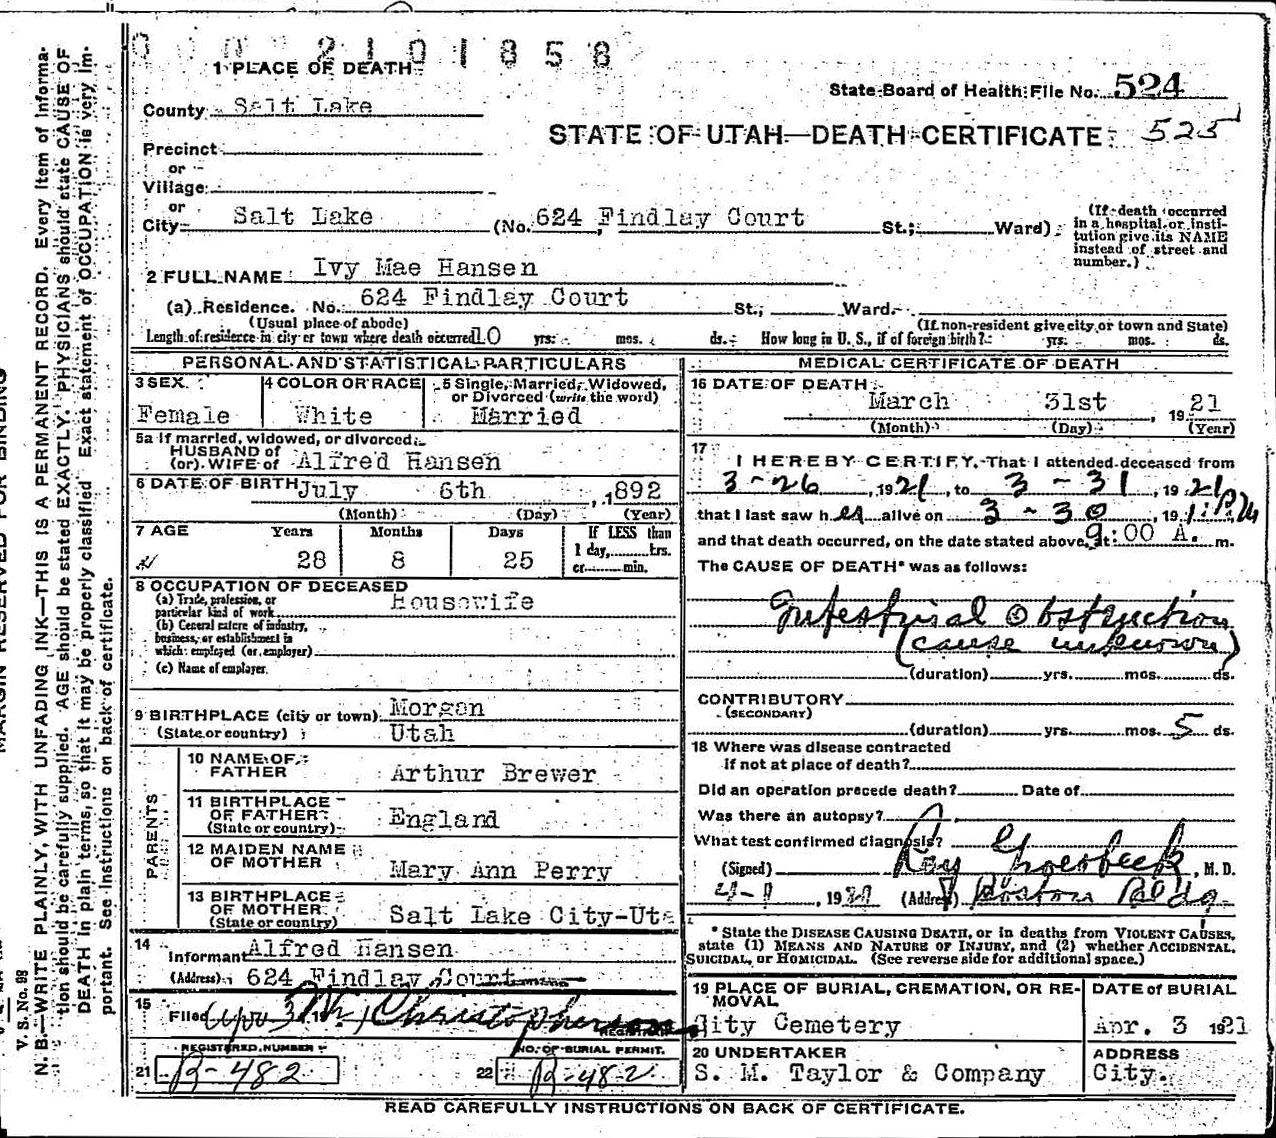 2101858
1 PLACE OF DEATH
State Board of Health File No. 524
County Salt Lake
STATE OF UTAH—DEATH CERTIFICATE 525
Precinct
or
Village
or
City Salt Lake (No. 624 Findlay Court St.; Ward)
(If death occurred
in a hospital or insti-
tution give its NAME
instead of street and
number.)
2 FULL NAME Ivy Mae Hansen
(a) Residence. No. 624 Findlay Court St., Ward.
(Usual place of abode) (If non-resident give city or town and State)
Length of residence in city or town where death occurred 10 yrs. mos. ds. How long in U. S., if of foreign birth? yrs. mos. ds.
PERSONAL AND STATISTICAL PARTICULARS
3 SEX
Female
4 COLOR OR RACE
White
5 Single, Married, Widowed,
or Divorced (write the word)
Married
5a If married, widowed, or divorced
HUSBAND of
(or) WIFE of Alfred Hansen
6 DATE OF BIRTH July 6th, 1892
(Month) (Day) (Year)
7 AGE Years Months Days If LESS than
1 day, hrs.
or min.
28 8 25
8 OCCUPATION OF DECEASED
(a) Trade, profession, or
particular kind of work Housewife
(b) General nature of industry,
business, or establishment in
which employed (or employer)
(c) Name of employer
9 BIRTHPLACE (city or town) Morgan
(State or country) Utah
PARENTS
10 NAME OF
FATHER Arthur Brewer
11 BIRTHPLACE
OF FATHER
(State or country) England
12 MAIDEN NAME
OF MOTHER Mary Ann Perry
13 BIRTHPLACE
OF MOTHER
(State or country) Salt Lake City-Uta
14
Informant Alfred Hansen
(Address) 624 Findlay Court
15
Filed 3 Christopherson
REGISTRAR
REGISTERED NUMBER
21 B-482
NO. OF BURIAL PERMIT.
22 B-482
MEDICAL CERTIFICATE OF DEATH
16 DATE OF DEATH
March 31st, 1921
(Month) (Day) (Year)
17
I HEREBY CERTIFY, That I attended deceased from
3-26, 1921, to 3-31, 1921
that I last saw her alive on 3-30, 19
and that death occurred, on the date stated above, at 9:00 A. m.
The CAUSE OF DEATH* was as follows:
Intestinal Obstruction
(cause unknown)
(duration) yrs. mos. ds.
CONTRIBUTORY
(SECONDARY)
(duration) yrs. mos. 5 ds.
18 Where was disease contracted
if not at place of death?
Did an operation precede death? Date of
Was there an autopsy?
What test confirmed diagnosis?
(Signed) Roy Groesbeck, M. D.
4-1, 1921 (Address) Boston Bldg.
* State the DISEASE CAUSING DEATH, or in deaths from VIOLENT CAUSES,
state (1) MEANS AND NATURE OF INJURY, and (2) whether ACCIDENTAL,
SUICIDAL, or HOMICIDAL. (See reverse side for additional space.)
19 PLACE OF BURIAL, CREMATION, OR RE-
MOVAL
City Cemetery
DATE of BURIAL
Apr. 3 1921
20 UNDERTAKER
S. M. Taylor & Company
ADDRESS
City.
READ CAREFULLY INSTRUCTIONS ON BACK OF CERTIFICATE.
MARGIN RESERVED FOR BINDING
V. S. No. 98
N. B.—WRITE PLAINLY, WITH UNFADING INK—THIS IS A PERMANENT RECORD. Every item of informa-
tion should be carefully supplied. AGE should be stated EXACTLY. PHYSICIANS should state CAUSE OF
DEATH in plain terms, so that it may be properly classified. Exact statement of OCCUPATION is very im-
portant. See Instructions on back of certificate.